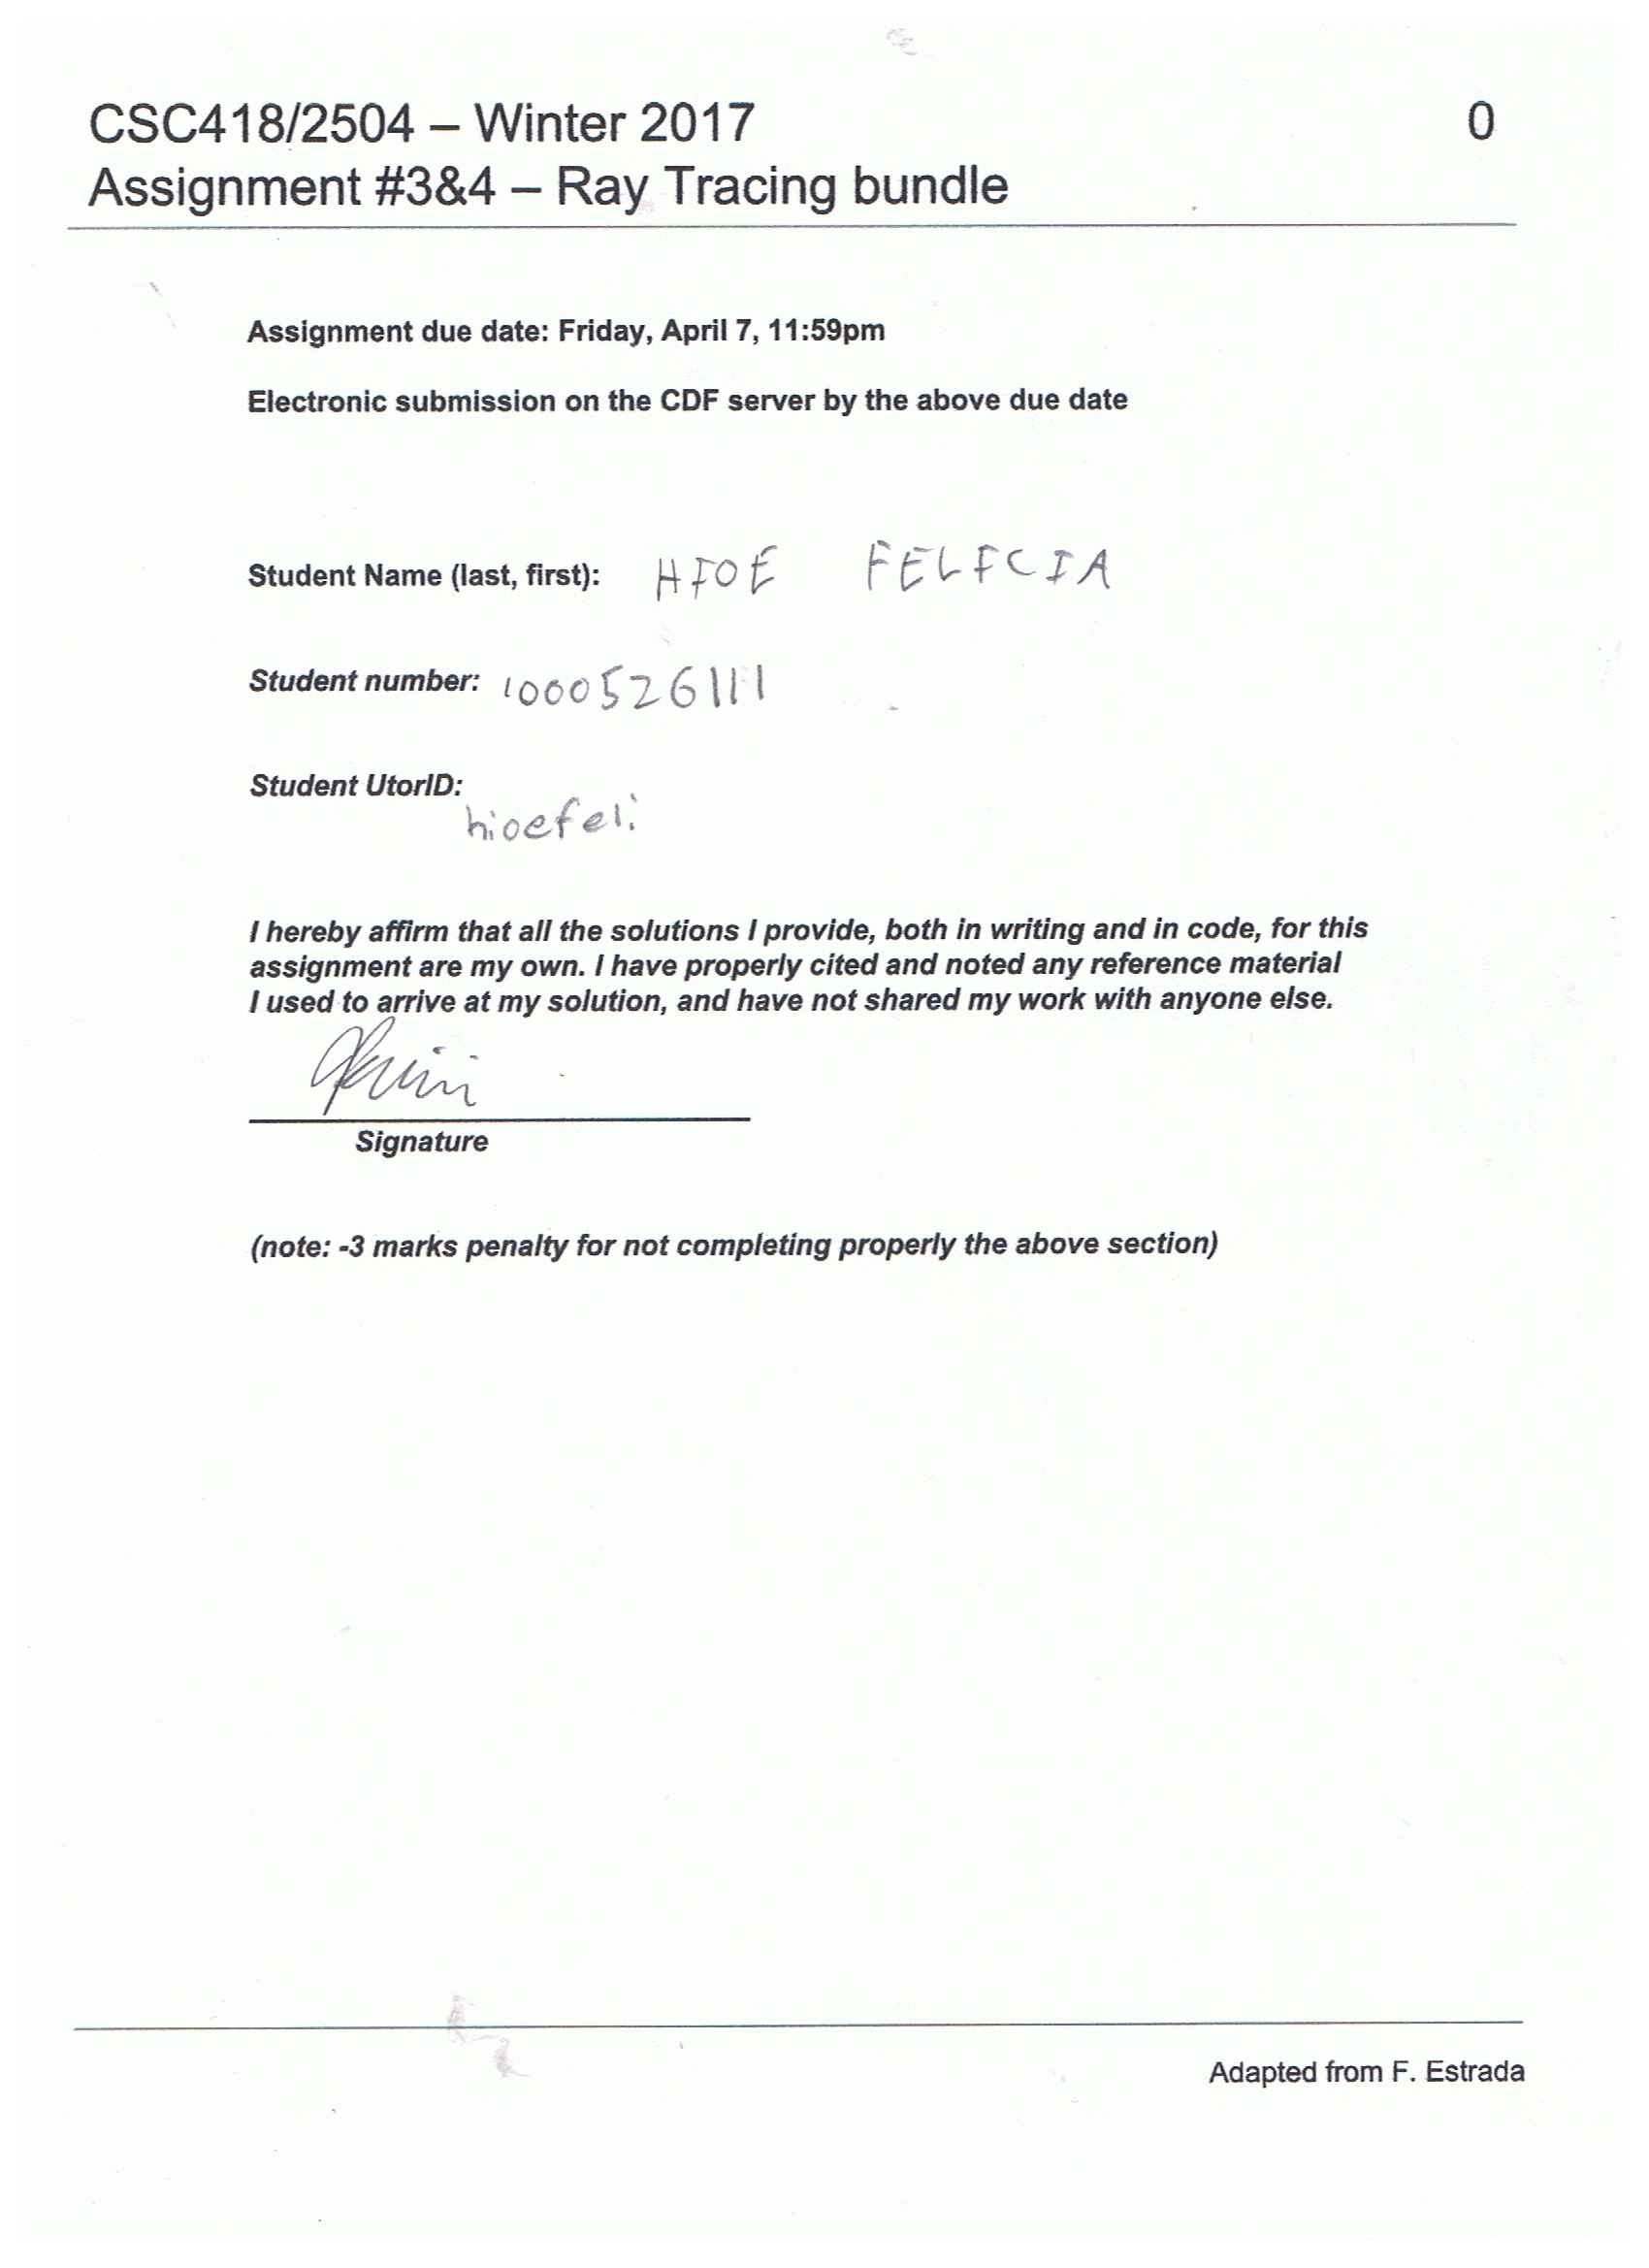 CSC418/2504 – Winter 2017 0
Assignment #3&4 – Ray Tracing bundle
Assignment due date: Friday, April 7, 11:59pm
Electronic submission on the CDF server by the above due date
Student Name (last, first): HIOE FELICIA
Student number: 1000526111
Student UtorID:
hioefeli
I hereby affirm that all the solutions I provide, both in writing and in code, for this
assignment are my own. I have properly cited and noted any reference material
I used to arrive at my solution, and have not shared my work with anyone else.
Signature
(note: -3 marks penalty for not completing properly the above section)
Adapted from F. Estrada